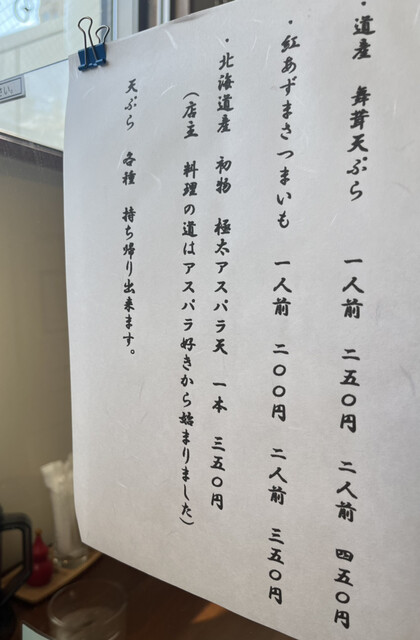 ・道産 舞茸天ぷら 一人前 二五〇円 二人前 四五〇円
・紅あずまさつまいも 一人前 二〇〇円 二人前 三五〇円
・北海道産 初物 極太アスパラ天 一本 三五〇円
(店主 料理の道はアスパラ好きから始まりました)
天ぷら 各種 持ち帰り出来ます。
さい。